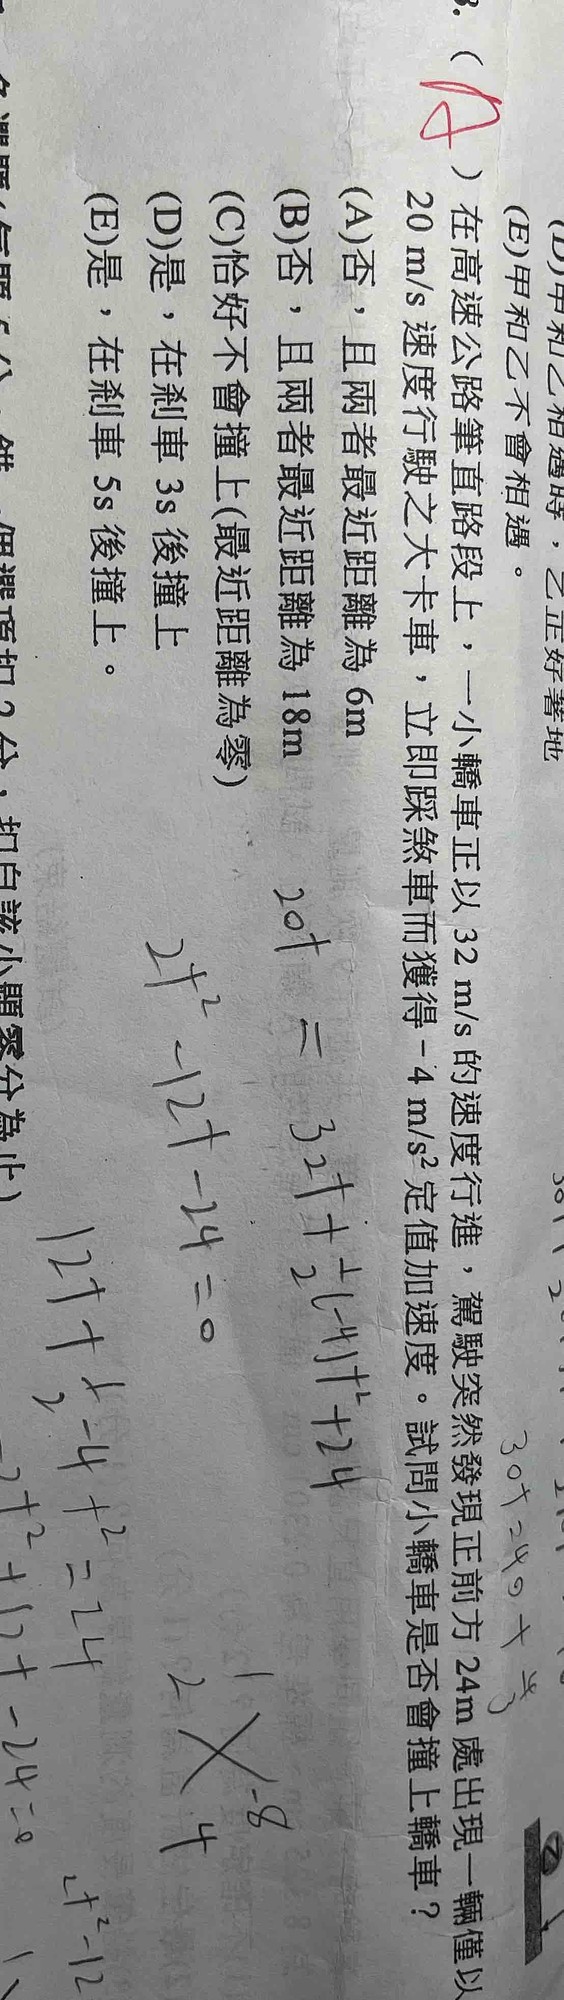 (D)甲和乙相遇時，乙正好著地
(E)甲和乙不會相遇。
3. ( A ) 在高速公路筆直路段上，一小轎車正以 32 m/s 的速度行進，駕駛突然發現正前方 24m 處出現一輛僅以
20 m/s 速度行駛之大卡車，立即踩煞車而獲得 -4 m/s² 定值加速度。試問小轎車是否會撞上轎車？
(A)否，且兩者最近距離為 6m
(B)否，且兩者最近距離為 18m
(C)恰好不會撞上(最近距離為零)
(D)是，在剎車 3s 後撞上
(E)是，在剎車 5s 後撞上。
30t=240
20t = 32t + 1/2(-4)t² + 24
2t² -12t -24 =0
1 -8
2 4
12t + 1/2 -4t² = 24
-2t² +12t -24=0
2t² -12